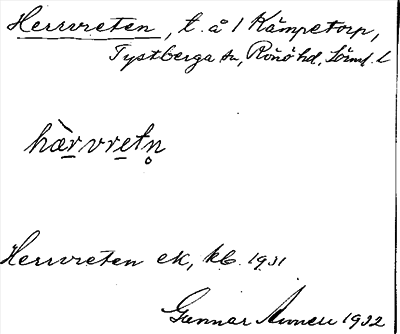 Herrvreten, t. å 1 Kämpetorp,
Tystberga sn, Rönö hd, Sörml. l
hæ̀rvretn̥
Herrvreten ek, kb. 1931
Gunnar 1932